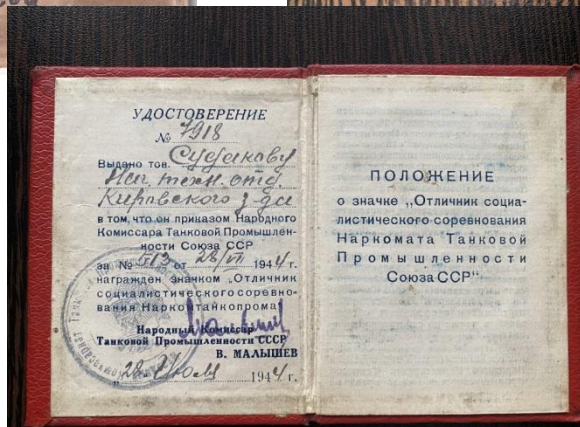 УДОСТОВЕРЕНИЕ
№ 7918
Выдано тов. Судакову
Нач. техн. отд.
Кировского з-да
в том, что он приказом Народного
Комиссара Танковой Промышлен-
ности Союза ССР
за № 513 от 28/VII 1944 г.
награжден значком „Отличник
социалистического соревно-
вания Наркотанкопрома"
Народный Комиссар
Танковой Промышленности СССР
В. МАЛЫШЕВ
„28" Июля 1944 г.
ПОЛОЖЕНИЕ
о значке „Отличник социа-
листического соревнования
Наркомата Танковой
Промышленности
Союза ССР"